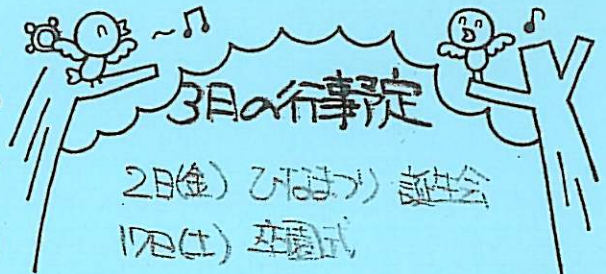 3月の行事予定
2日(金) ひなまつり 誕生会
17日(土) 卒園式